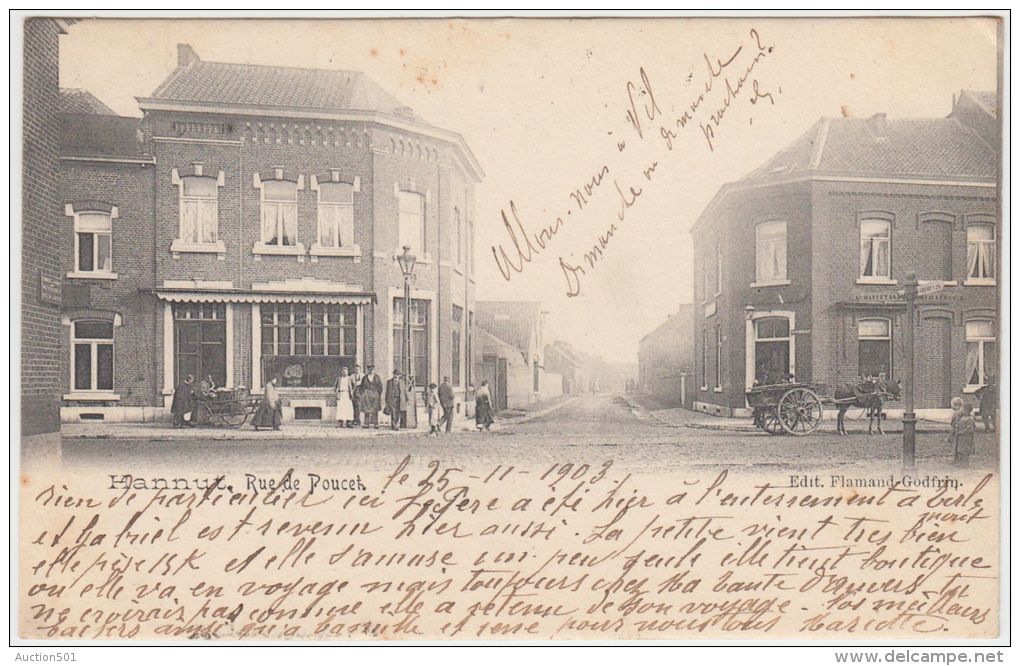 Allons-nous à Vil
Dimanche ou dimanche
prochain?
Hannut. Rue de Poucet.
Edit. Flamand-Godfrin.
le 25-11-1903
rien de particulier ici le Père a été hier à l'enterrement à
et Gabriel est revenu hier aussi. La petite vient très bien
elle pèse 15K et elle s'amuse un peu seule elle tient boutique
ou elle va en voyage mais toujours chez sa tante d'Anvers tu
ne croirais pas comme elle a retenu de son voyage. Nos meilleurs
baisers ainsi qu'à famille et pour nous tous
Auction501
delcampe.net